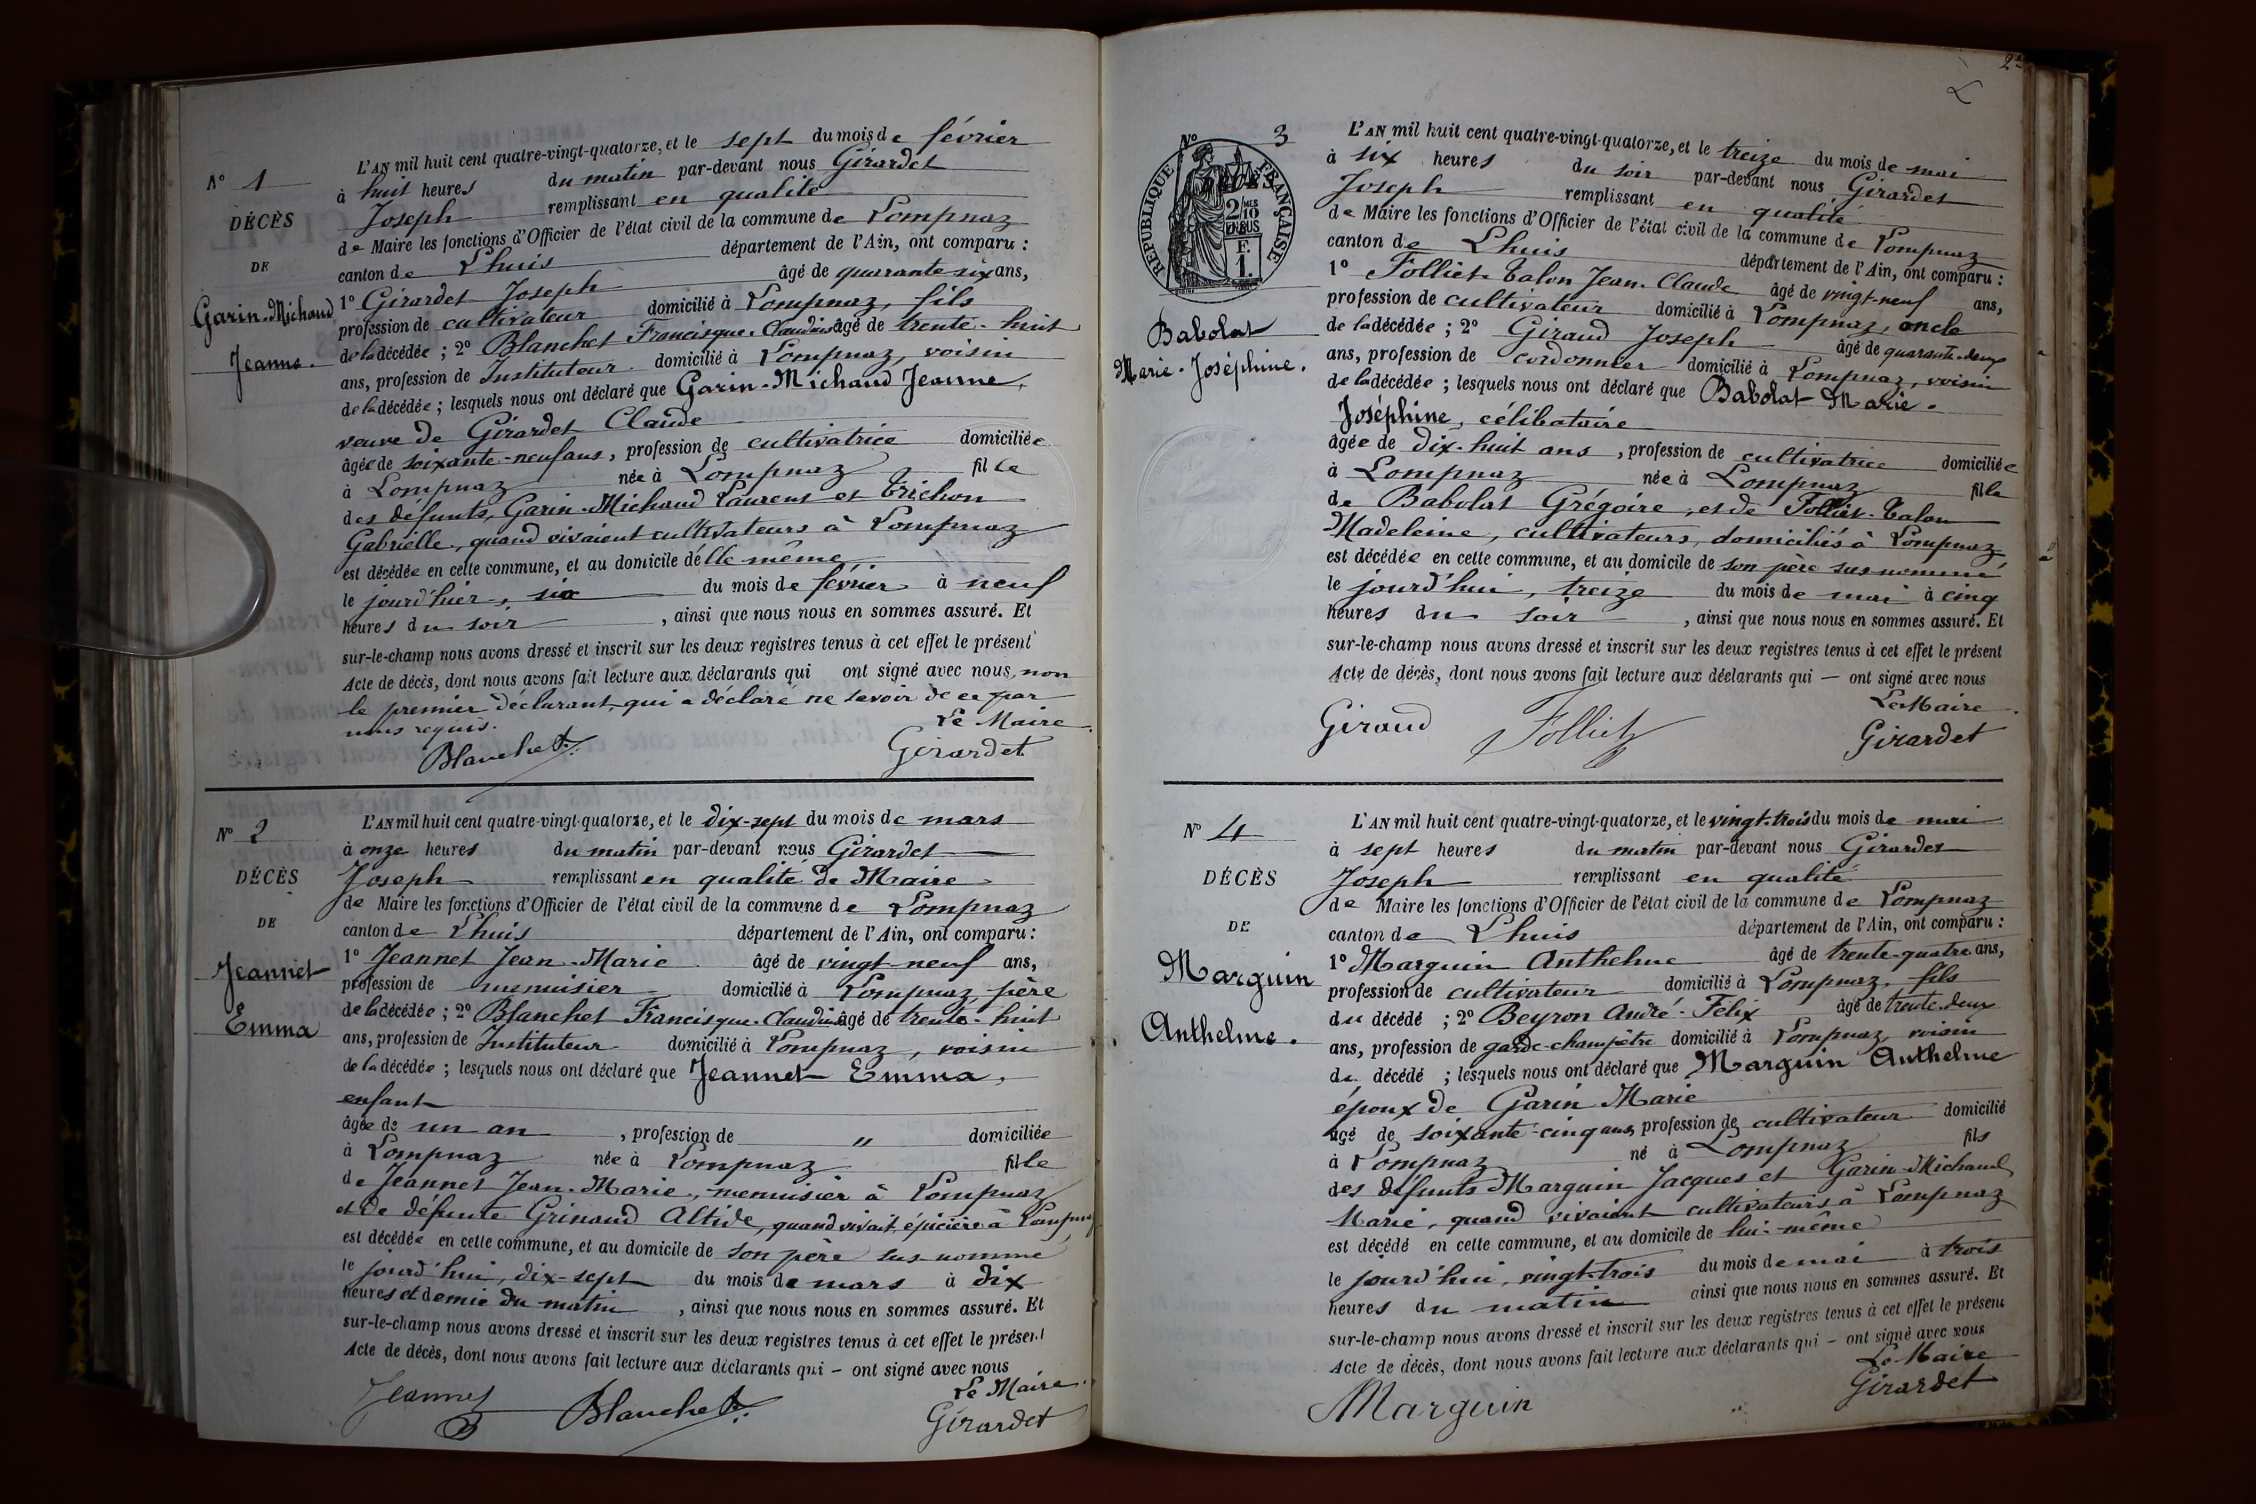 L'AN mil huit cent quatre-vingt-quatorze, et le sept du mois de février
à huit heures du matin par-devant nous Girardet
Joseph remplissant en qualité
de Maire les fonctions d'Officier de l'état civil de la commune de Lompnaz
canton de Lhuis département de l'Ain, ont comparu :
1° Girardet Joseph âgé de quarante-six ans,
profession de cultivateur domicilié à Lompnaz, fils
de la décédée ; 2° Blanchet Francisque-Claudius âgé de trente-huit
ans, profession de Instituteur domicilié à Lompnaz, voisin
de la décédée ; lesquels nous ont déclaré que Garin-Michaud Jeanne,
veuve de Girardet Claude
âgée de soixante-neuf ans, profession de cultivatrice domiciliée
à Lompnaz née à Lompnaz fille
des défunts, Garin-Michaud Laurent et Trichon
Gabrielle, quand vivaient cultivateurs à Lompnaz
est décédée en cette commune, et au domicile d'elle même
le jourd'hier, six du mois de février à neuf
heures du soir, ainsi que nous nous en sommes assuré. Et
sur-le-champ nous avons dressé et inscrit sur les deux registres tenus à cet effet le présent
Acte de décès, dont nous avons fait lecture aux déclarants qui ont signé avec nous, non
le premier déclarant, qui a déclaré ne savoir de ce par
nous requis.
Le Maire
Blanchet
Girardet
N° 1
DÉCÈS
DE
Garin-Michaud
Jeanne.
L'AN mil huit cent quatre-vingt-quatorze, et le dix-sept du mois de mars
à onze heures du matin par-devant nous Girardet
Joseph remplissant en qualité de Maire
de Maire les fonctions d'Officier de l'état civil de la commune de Lompnaz
canton de Lhuis département de l'Ain, ont comparu :
1° Jeannet Jean-Marie âgé de vingt-neuf ans,
profession de menuisier domicilié à Lompnaz, père
de la décédée ; 2° Blanchet Francisque-Claudius âgé de trente-huit
ans, profession de Instituteur domicilié à Lompnaz, voisin
de la décédée ; lesquels nous ont déclaré que Jeannet Emma,
enfant
âgée de un an, profession de " domiciliée
à Lompnaz née à Lompnaz fille
de Jeannet Jean-Marie, menuisier à Lompnaz
et de défunte Grinand Altide, quand vivait épicière à Lompnaz
est décédée en cette commune, et au domicile de son père sus nommé
le jourd'hui, dix-sept du mois de mars à dix
heures et demie du matin, ainsi que nous nous en sommes assuré. Et
sur-le-champ nous avons dressé et inscrit sur les deux registres tenus à cet effet le présent
Acte de décès, dont nous avons fait lecture aux déclarants qui – ont signé avec nous
Le Maire
Jeannet
Blanchet
Girardet
N° 2
DÉCÈS
DE
Jeannet
Emma
2
L'AN mil huit cent quatre-vingt-quatorze, et le treize du mois de mai
à six heures du soir par-devant nous Girardet
Joseph remplissant en qualité
de Maire les fonctions d'Officier de l'état civil de la commune de Lompnaz
canton de Lhuis département de l'Ain, ont comparu :
1° Folliet-Talon Jean-Claude âgé de vingt-neuf ans,
profession de cultivateur domicilié à Lompnaz, oncle
de la décédée ; 2° Giraud Joseph âgé de quarante-deux
ans, profession de cordonnier domicilié à Lompnaz, voisin
de la décédée ; lesquels nous ont déclaré que Babolat Marie-
Joséphine, célibataire
âgée de dix-huit ans, profession de cultivatrice domiciliée
à Lompnaz née à Lompnaz fille
de Babolat Grégoire, et de Folliet-Talon
Madeleine, cultivateurs, domiciliés à Lompnaz
est décédée en cette commune, et au domicile de son père sus nommé
le jourd'hui, treize du mois de mai à cinq
heures du soir, ainsi que nous nous en sommes assuré. Et
sur-le-champ nous avons dressé et inscrit sur les deux registres tenus à cet effet le présent
Acte de décès, dont nous avons fait lecture aux déclarants qui — ont signé avec nous
Le Maire
Giraud
Folliet
Girardet
N° 3
RÉPUBLIQUE FRANÇAISE
2/10 EN SUS
F.
1.
Babolat
Marie-Joséphine.
L'AN mil huit cent quatre-vingt-quatorze, et le vingt-trois du mois de mai
à sept heures du matin par-devant nous Girardet
Joseph remplissant en qualité
de Maire les fonctions d'Officier de l'état civil de la commune de Lompnaz
canton de Lhuis département de l'Ain, ont comparu :
1° Marguin Anthelme âgé de trente-quatre ans,
profession de cultivateur domicilié à Lompnaz, fils
du décédé ; 2° Beyron André-Félix âgé de trente-deux
ans, profession de garde-champêtre domicilié à Lompnaz, voisin
du décédé ; lesquels nous ont déclaré que Marguin Anthelme
époux de Garin Marie
âgé de soixante-cinq ans, profession de cultivateur domicilié
à Lompnaz né à Lompnaz fils
des défunts Marguin Jacques et Garin-Michaud
Marie, quand vivaient cultivateurs à Lompnaz
est décédé en cette commune, et au domicile de lui-même
le jourd'hui, vingt-trois du mois de mai à trois
heures du matin ainsi que nous nous en sommes assuré. Et
sur-le-champ nous avons dressé et inscrit sur les deux registres tenus à cet effet le présent
Acte de décès, dont nous avons fait lecture aux déclarants qui – ont signé avec nous
Le Maire
Marguin
Girardet
N° 4
DÉCÈS
DE
Marguin
Anthelme.